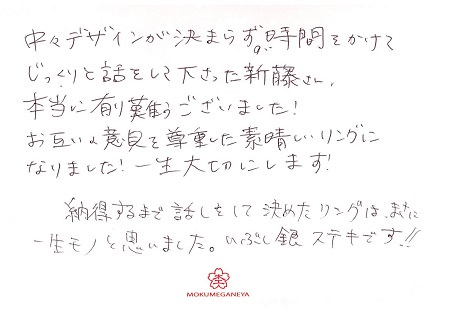 中々デザインが決まらず。時間をかけて
じっくりと話をして下さった新藤さん、
本当に有り難うございました!
お互いの意見を尊重した素晴しいリングに
なりました!一生大切にします!
納得するまで話しをして決めたリングは、まさに
一生モノと思いました。いぶし銀ステキです!!
MOKUMEGANEYA